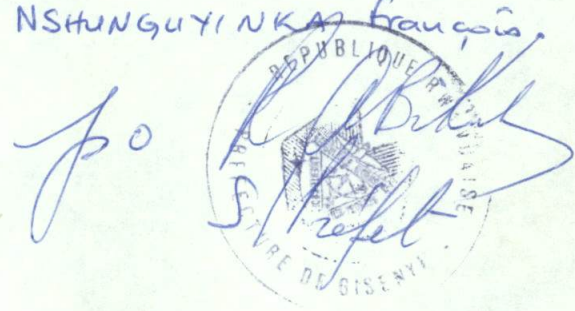 NSHUNGUYINKA François.
po
S/Préfet
REPUBLIQUE RWANDAISE
PREFECTURE DE GISENYI